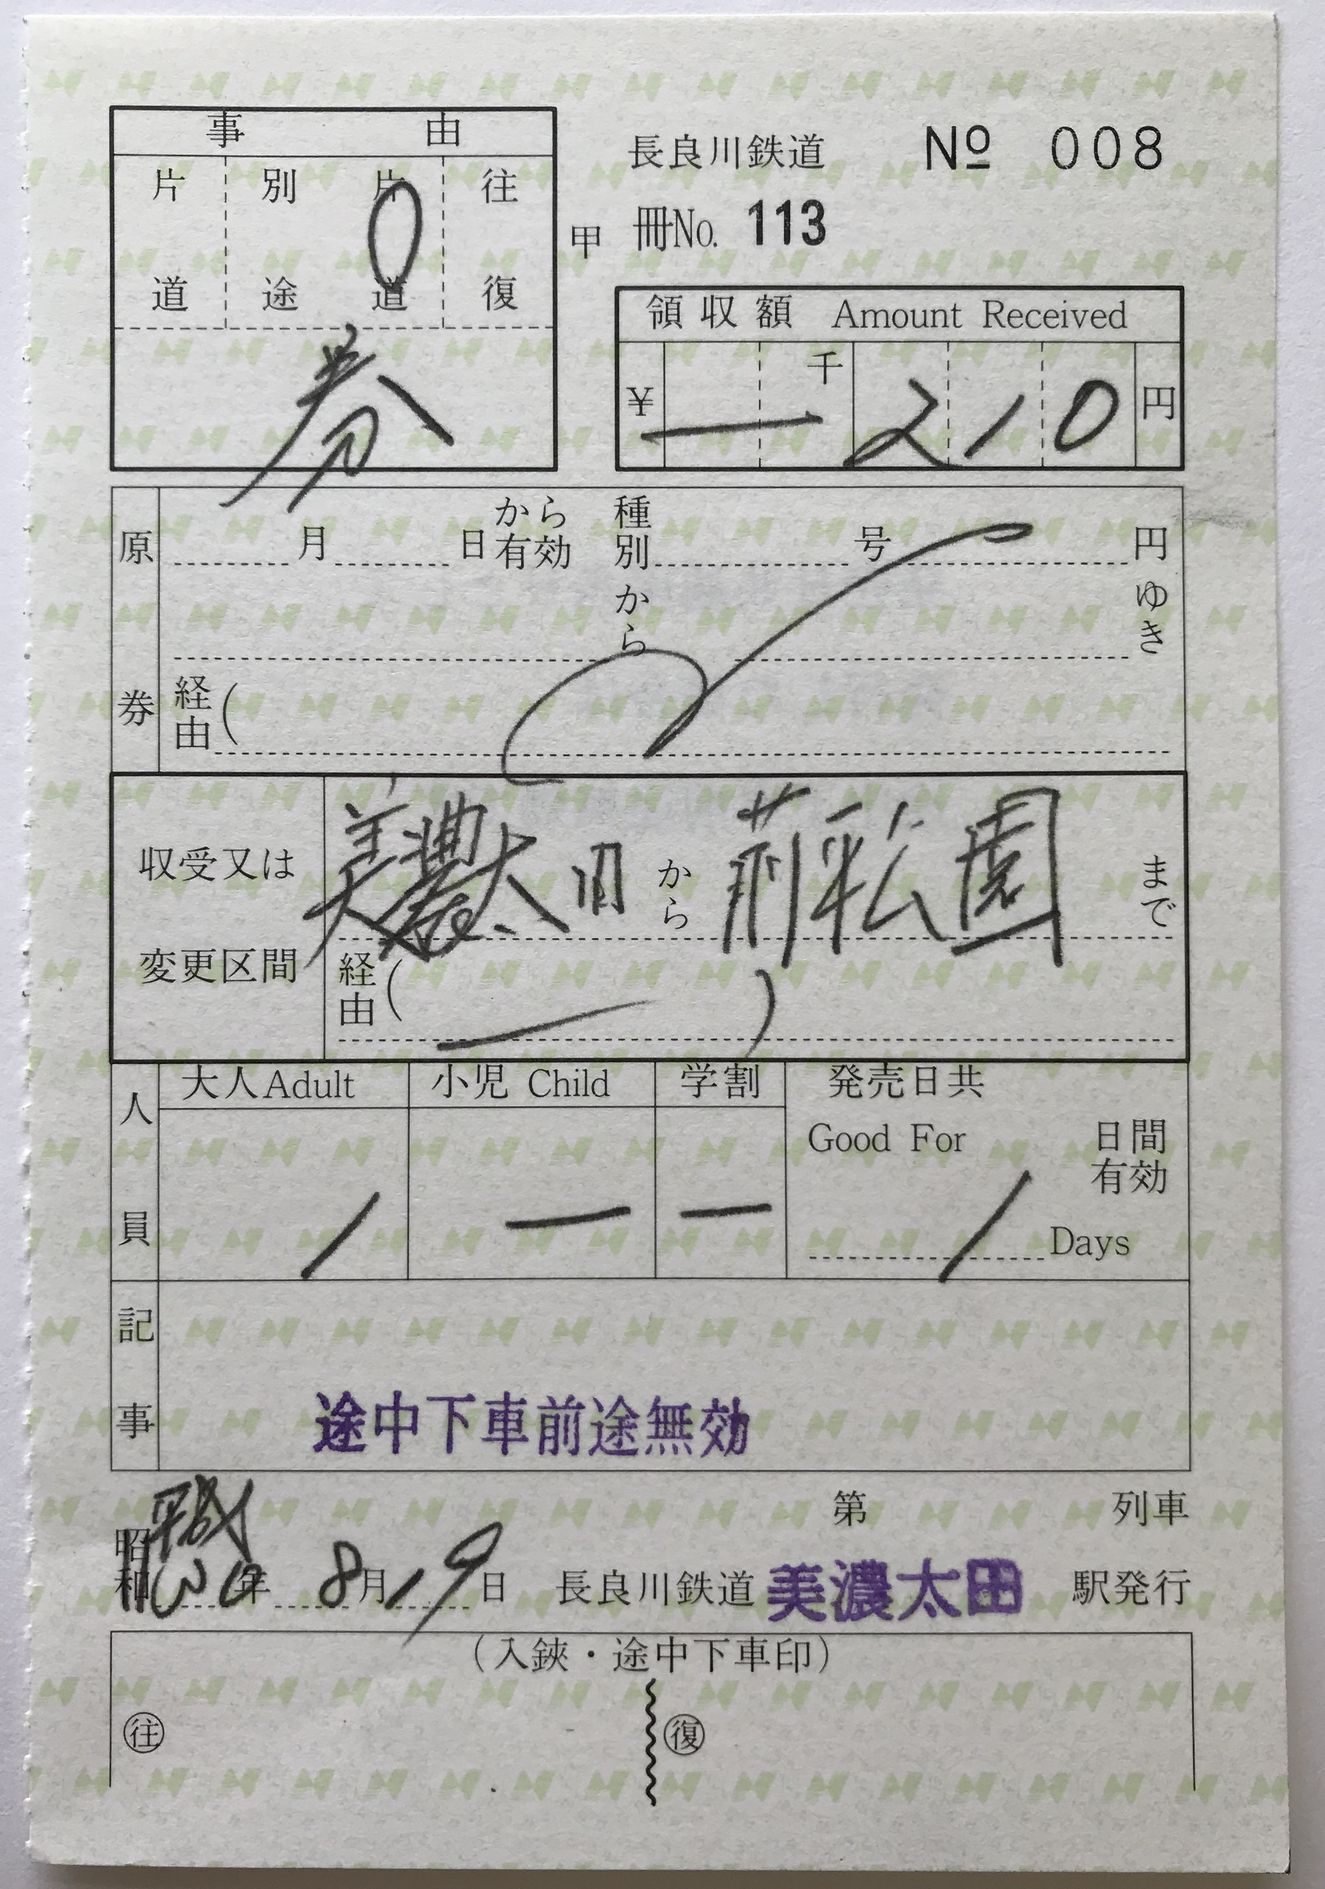 事由
片道 別途 片道 往復
券
長良川鉄道 № 008
甲 冊No. 113
領収額 Amount Received
¥ 千 210 円
原券
月 日から有効 種別 号 円
から ゆき
経由(
収受又は変更区間
美濃太田 から 前平公園 まで
経由( )
人員
大人Adult 小児 Child 学割 発売日共
Good For 日間有効
1 — — 1 Days
記事
途中下車前途無効
第 列車
昭和 平成 30年 8月 19日 長良川鉄道 美濃太田 駅発行
(入鋏・途中下車印)
往 復